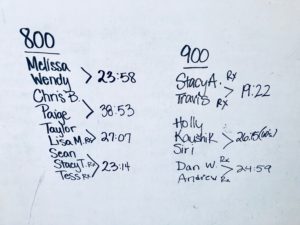 800
Melissa
Wendy > 23:58
Chris B.
Paige > 38:53
Taylor
Lisa M. Rx > 27:07
Sean
Stacy T. Rx > 23:14
Tess Rx
900
Stacy A. Rx
Travis Rx > 19:22
Holly
Kaushik >
Siri
Dan W. Rx
Andrew Rx > 24:59